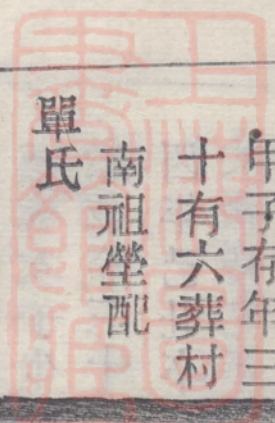 甲子存年三
十有六葬村
南祖塋配
單氏